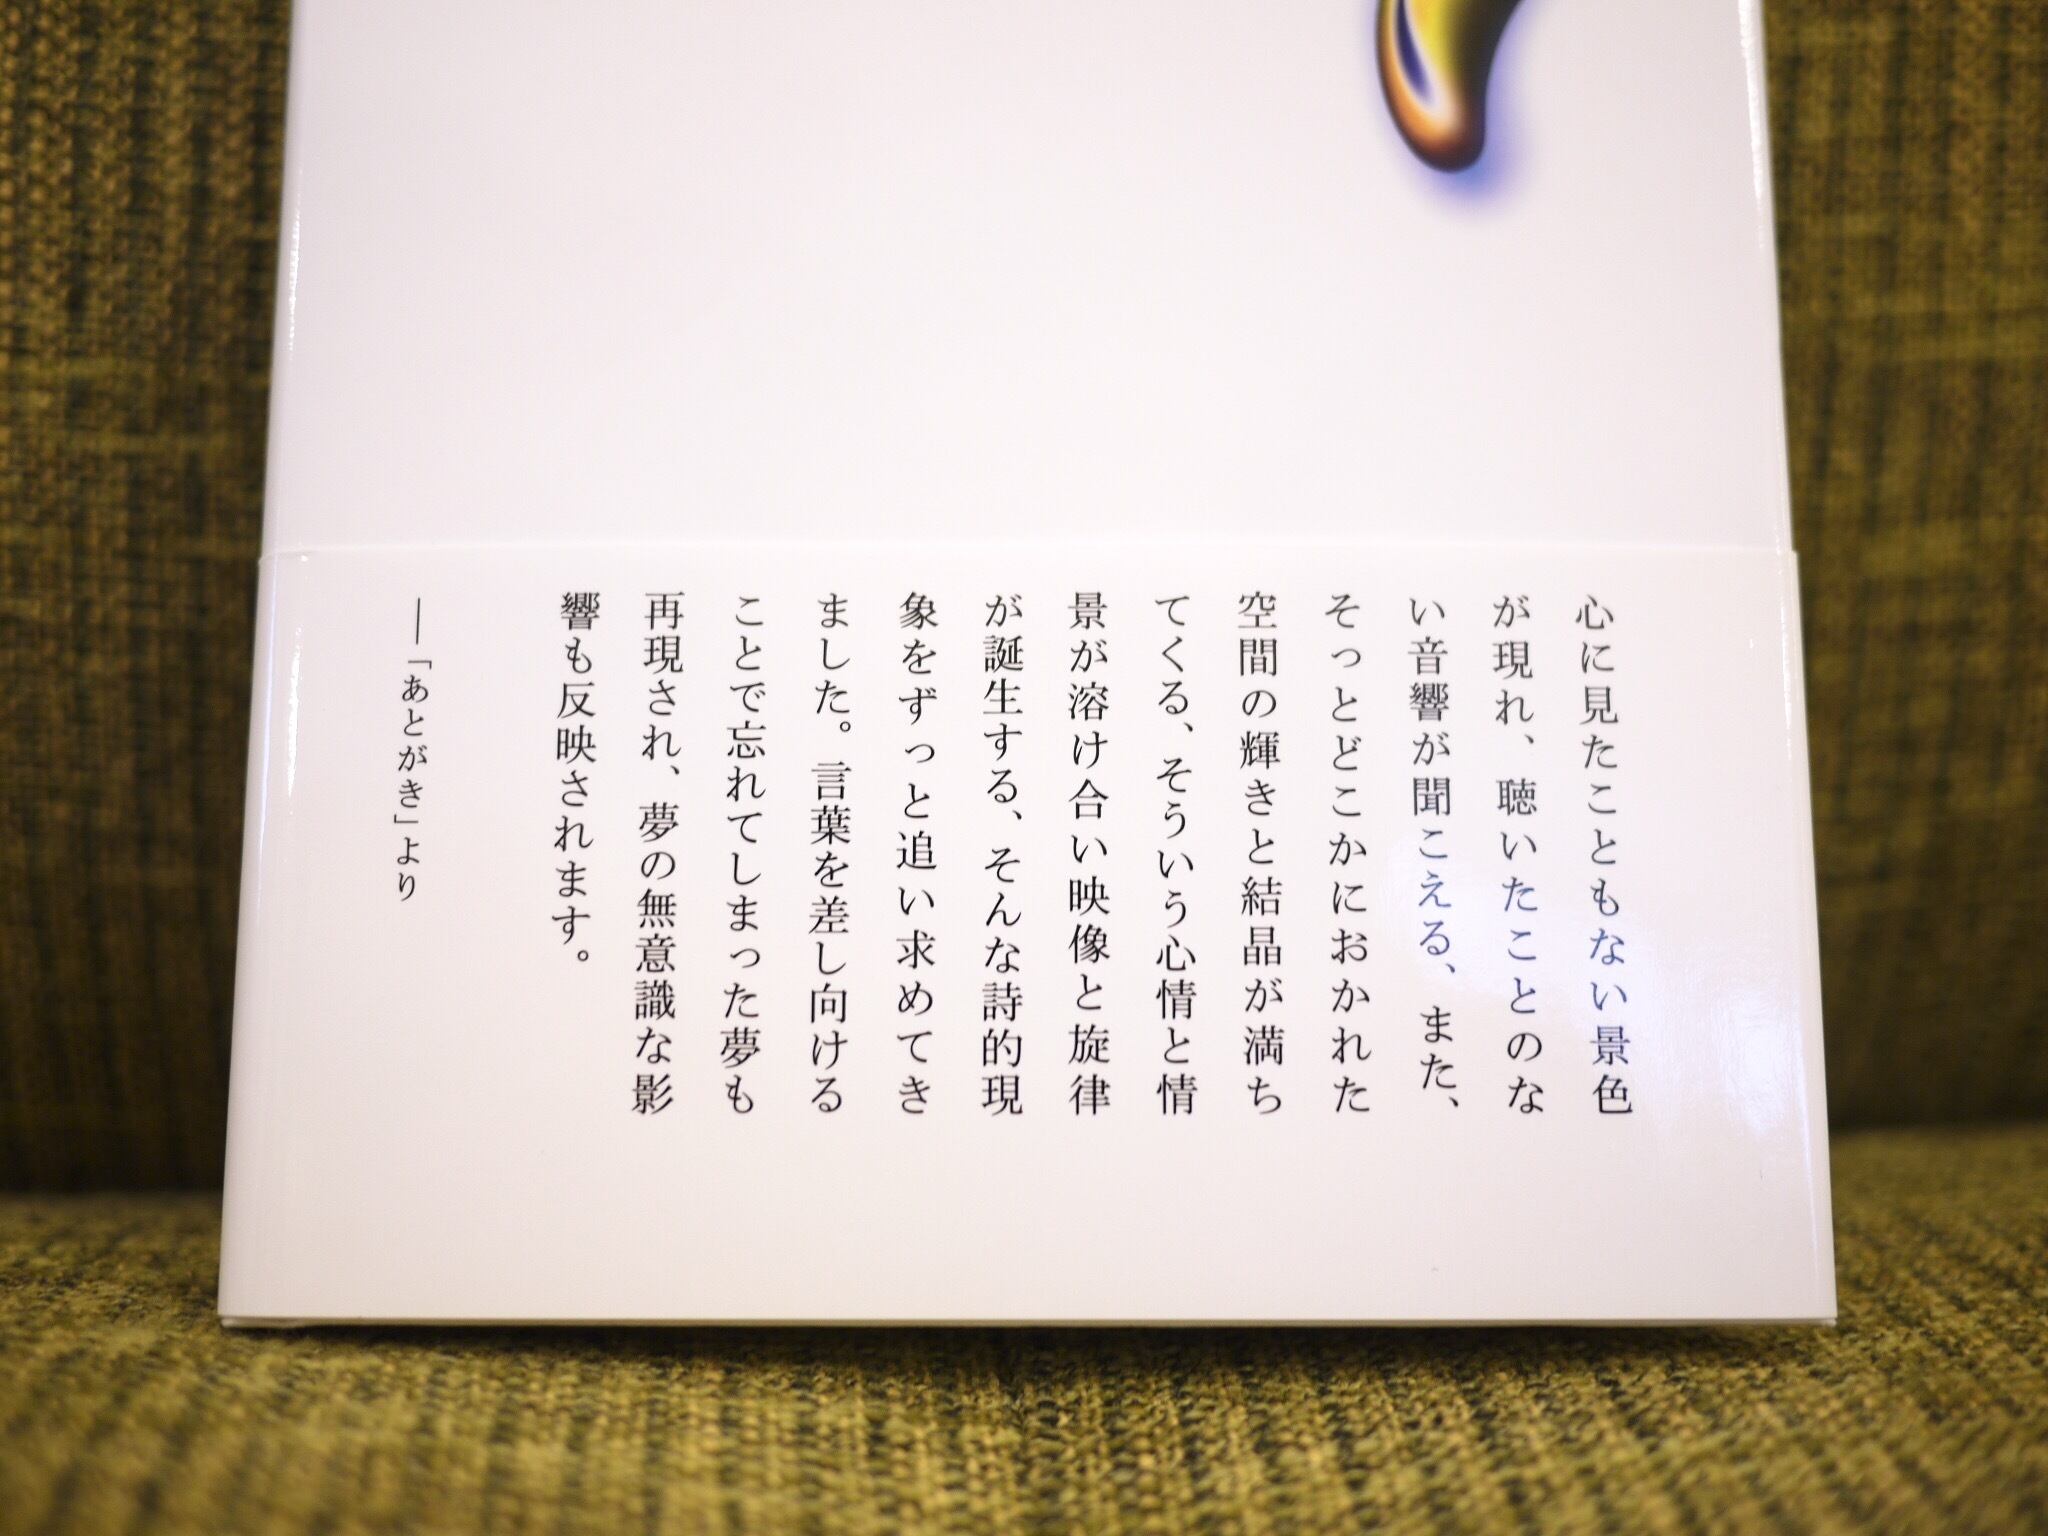 心に見たこともない景色
が現れ、聴いたことのな
い音響が聞こえる、また、
そっとどこかにおかれた
空間の輝きと結晶が満ち
てくる、そういう心情と情
景が溶け合い映像と旋律
が誕生する、そんな詩的現
象をずっと追い求めてき
ました。言葉を差し向ける
ことで忘れてしまった夢も
再現され、夢の無意識な影
響も反映されます。
―「あとがき」より